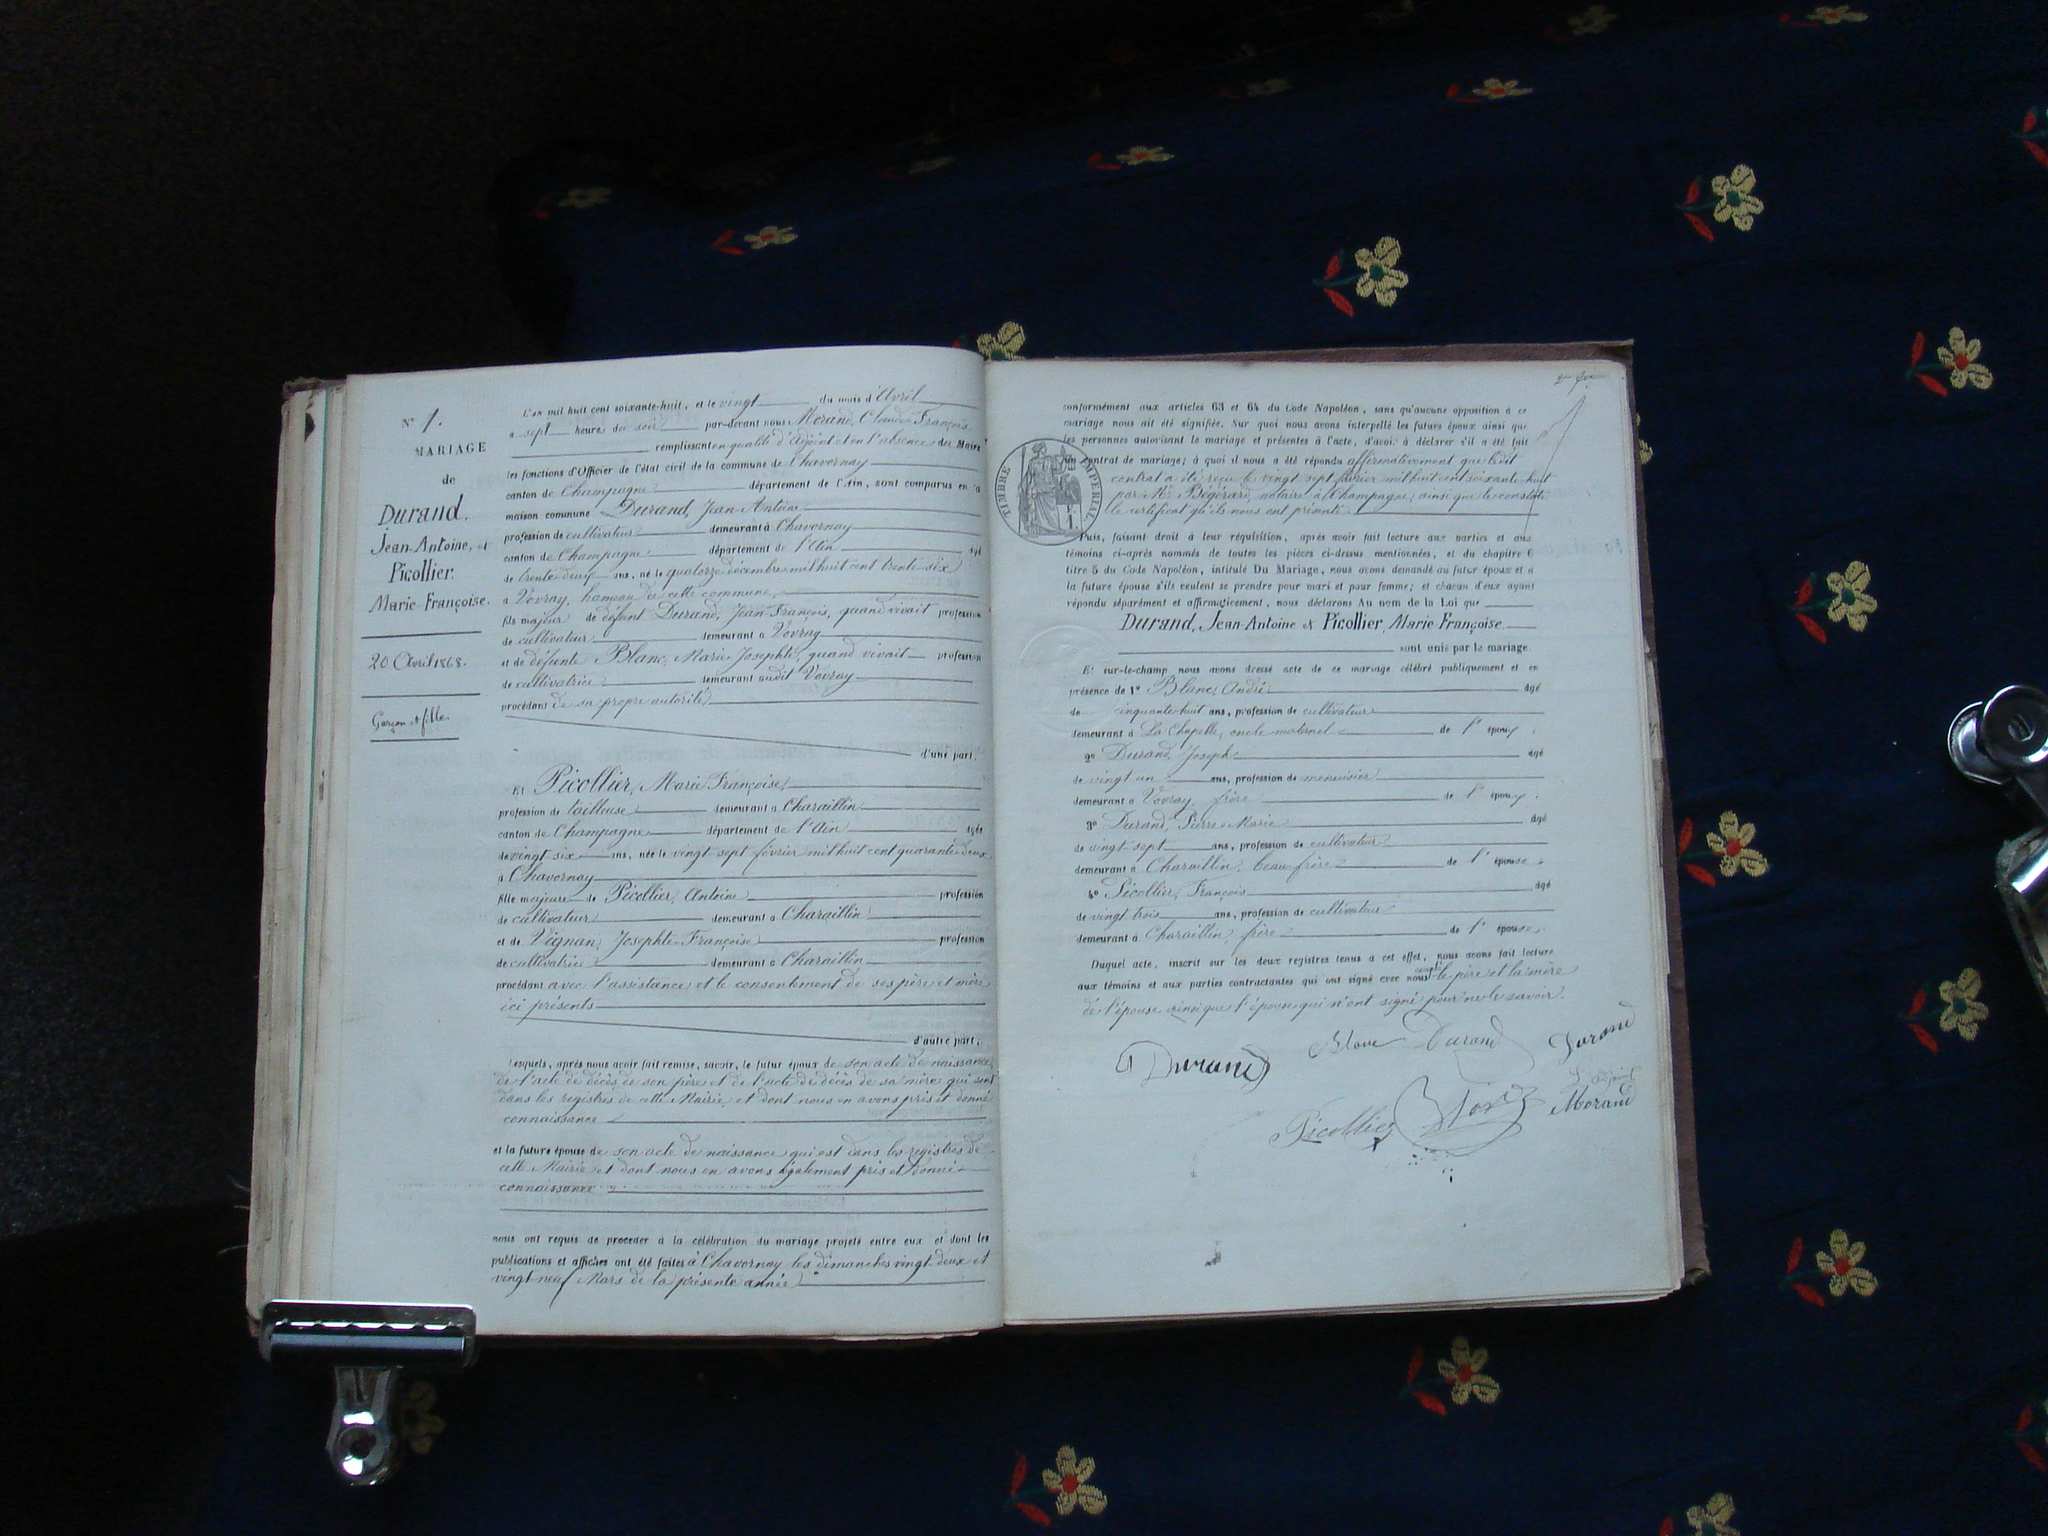 N° 1.
MARIAGE
de
Durand,
Jean-Antoine, et
Picollier
Marie-Françoise.
20 Avril 1868.
Garçon et fille.
L'an mil huit cent soixante-huit, et le vingt du mois d'Avril
à sept heures du soir par-devant nous Morand, Claude François
remplissant en qualité d'Adjoint et en l'absence du Maire
les fonctions d'Officier de l'état civil de la commune de Chavornay
canton de Champagne département de l'Ain, sont comparus en la
maison commune Durand, Jean-Antoine
profession de cultivateur demeurant à Chavornay
canton de Champagne département de l'Ain âgé
de trente deux ans, né le quatorze décembre mil huit cent trente-six
à Vovray, hameau de cette commune,
fils majeur de défunt Durand, Jean-François, quand vivait profession
de cultivateur demeurant à Vovray
et de défunte Blanc, Marie-Josephte, quand vivait profession
de cultivatrice demeurant audit Vovray
procédant de sa propre autorité
d'une part.
Et Picollier, Marie Françoise,
profession de tailleuse demeurant à Charaillin
canton de Champagne département de l'Ain âgée
de vingt-six ans, née le vingt-sept février mil huit cent quarante-deux
à Chavornay
fille majeure de Picollier, Antoine profession
de cultivateur demeurant à Charaillin
et de Vignan, Josephte-Françoise profession
de cultivatrice demeurant à Charaillin
procédant avec l'assistance et le consentement de ses père et mère
ici présents
d'autre part.
Lesquels, après nous avoir fait remise, savoir, le futur époux de son acte de naissance
de l'acte de décès de son père et de l'acte de décès de sa mère qui sont
dans les registres de cette Mairie, et dont nous en avons pris et donné
connaissance
et la future épouse de son acte de naissance qui est dans les registres de
cette Mairie et dont nous en avons également pris et donné
connaissance
nous ont requis de procéder à la célébration du mariage projeté entre eux et dont les
publications et affiches ont été faites à Chavornay les dimanches vingt-deux et
vingt-neuf Mars de la présente année
conformément aux articles 63 et 64 du Code Napoléon, sans qu'aucune opposition à ce
mariage nous ait été signifiée. Sur quoi nous avons interpellé les futurs époux ainsi que
les personnes autorisant le mariage et présentes à l'acte, d'avoir à déclarer s'il a été fait
un contrat de mariage; à quoi il nous a été répondu affirmativement que ledit
contrat a été reçu le vingt sept février mil huit cent soixante-huit
par Me Bégérard, notaire à Champagne; ainsi que le constate
le certificat qu'ils nous ont présenté.
TIMBRE IMPERIAL
Puis, faisant droit à leur réquisition, après avoir fait lecture aux parties et aux
témoins ci-après nommés de toutes les pièces ci-dessus mentionnées, et du chapitre 6
titre 5 du Code Napoléon, intitulé Du Mariage, nous avons demandé au futur époux et à
la future épouse s'ils veulent se prendre pour mari et pour femme; et chacun d'eux ayant
répondu séparément et affirmativement, nous déclarons Au nom de la Loi que
Durand, Jean-Antoine et Picollier, Marie Françoise.
sont unis par le mariage.
Et sur-le-champ nous avons dressé acte de ce mariage célébré publiquement et en
présence de 1° Blanc, André âgé
de cinquante-huit ans, profession de cultivateur
demeurant à La Chapelle, oncle maternel de l'époux;
2° Durand, Joseph âgé
de vingt un ans, profession de menuisier
demeurant à Vovray, frère de l'époux;
3° Durand, Pierre-Marie âgé
de vingt-sept ans, profession de cultivateur
demeurant à Charaillin, beau-frère de l'épouse;
4° Picollier, François âgé
de vingt-trois ans, profession de cultivateur
demeurant à Charaillin, frère de l'épouse.
Duquel acte, inscrit sur les deux registres tenus à cet effet, nous avons fait lecture
aux témoins et aux parties contractantes qui ont signé avec nous excepté le père et la mère
de l'épouse ainsi que l'épouse qui n'ont signé pour ne le savoir.
Durand
Blanc
Durand
Durand
Picollier
L'adjoint
Morand